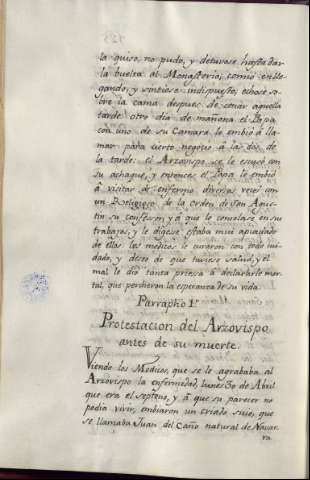 la quiso, no pudo, y detuvose hasta dar
la buelta al Monasterio, comió en lle-
gando, y sintiose indispuesto, echose so-
bre la cama despues de cenar aquella
tarde otro dia de mañana el Papa
con uno de su Camara le embió á lla-
mar para cierto negocio á las dos de
la tarde: el Arzovispo se le escusó con
su achaque, y entonces el Papa le embió
á visitar de enfermo diversas veces con
un Religioso de la orden de San Agus-
tin su confesor, y á que le consolase en sus
trabajos, y le digese estaba mui apiadado
de ellos los medicos le curaron con todo cui-
dado, y deseo de que tuviese salud, y el
mal le dio tanta priesa á declararse mor-
tal, que perdieron la esperanza de su vida.
Parrapho 1º
Protestacion del Arzovispo
antes de su muerte.
Viendo los Medicos, que se le agrababa al
Arzovispo la enfermedad, lunes 30 de Abril
que era el septeno, y á que su parecer no
podia vivir, embiaron un criado suio, que
se llamaba Juan del Caño natural de Navar-
ra.